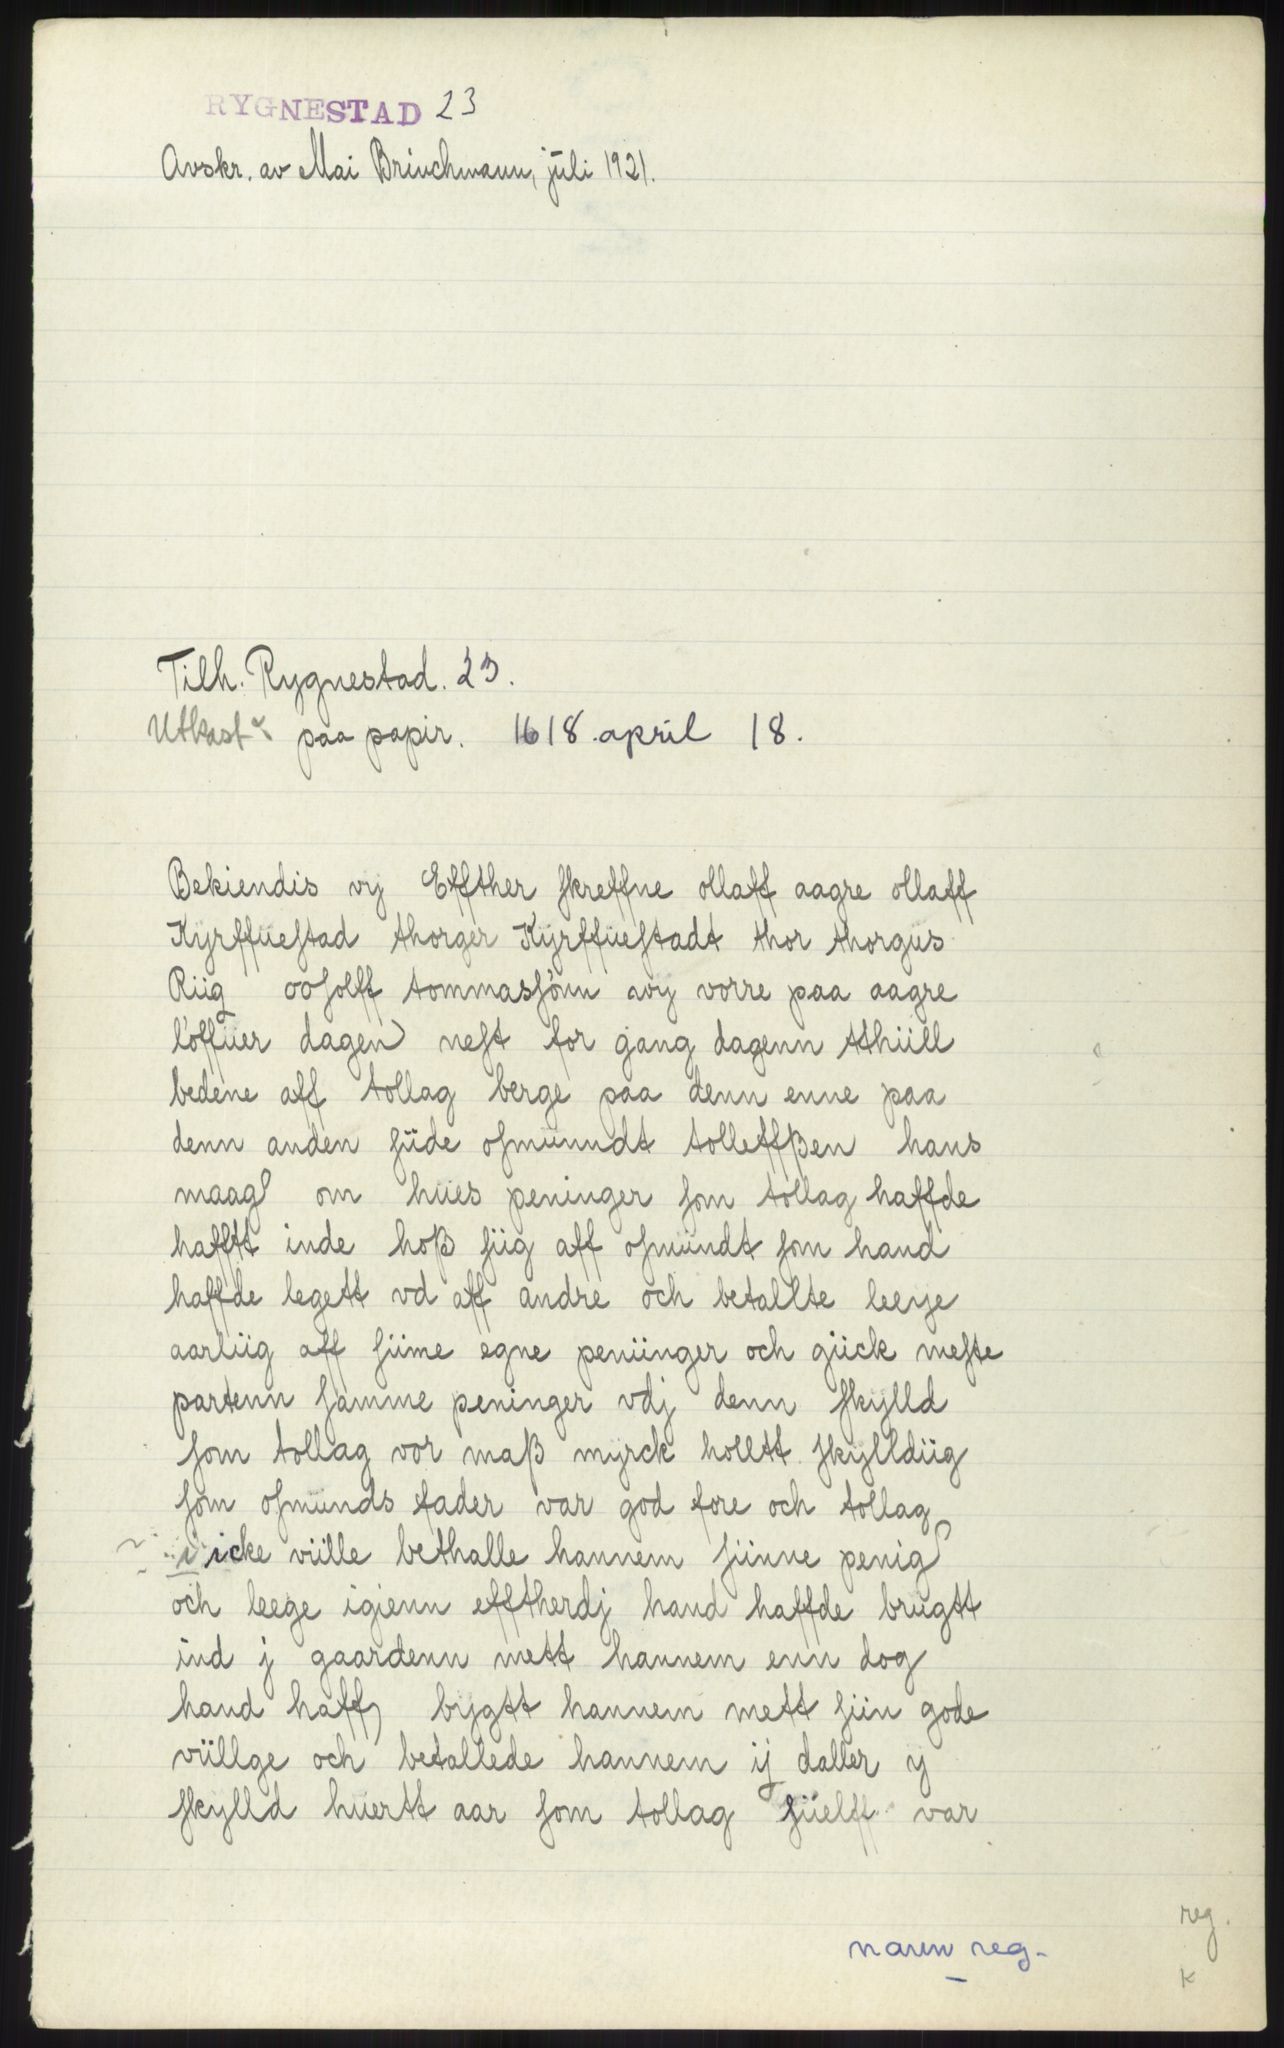 RYGNESTAD 23
Avskr. av Mai Brinchmann, juli 1921.
Tilh. Rygnestad. 23.
Utkast paa papir. 1618. april 18.
Bekiendis vij Effther skreffne ollaff aagre ollaff
Kÿrffuestad thorger Kÿrffuestadt thor thorgus
Riig oosolff tommassønn wy vorre paa aagre
løffuer dagen nest for gang dagenn tthiill
bedene aff tollag berge paa denn enne paa
denn anden siide osmunndt tolleffßen hans
maag om hues peninger som tollag haffde
hafftt inde hoß siig aff osmundt som hand
haffde legett vd aff andre och betallte leeye
aarliig aff siine egne peniinger och giick meste
partenn samme peninger vdj denn skylld
som tollag vor maß myrck holltt skylldiig
som osmunds fader var god fore och tollag
icke viille bethalle hannem siinne penig
och leege igienn efftherdj hand haffde brugtt
ind j gaardenn mett hannem enn dog
hand haff bygtt hannem mett siin gode
viillge och betallede hannem ij daller y
skylld huertt aar som tollag siielff var
navn reg.
reg.
K